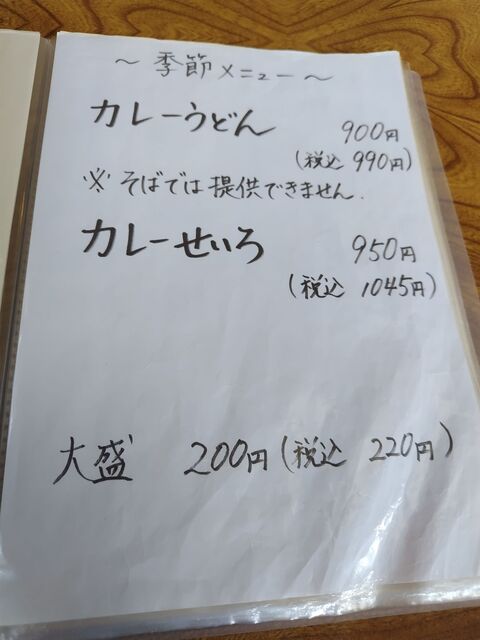 ～ 季節メニュー ～
カレーうどん 900円
(税込 990円)
※ そばでは提供できません.
カレーせいろ 950円
(税込 1045円)
大盛 200円(税込 220円)